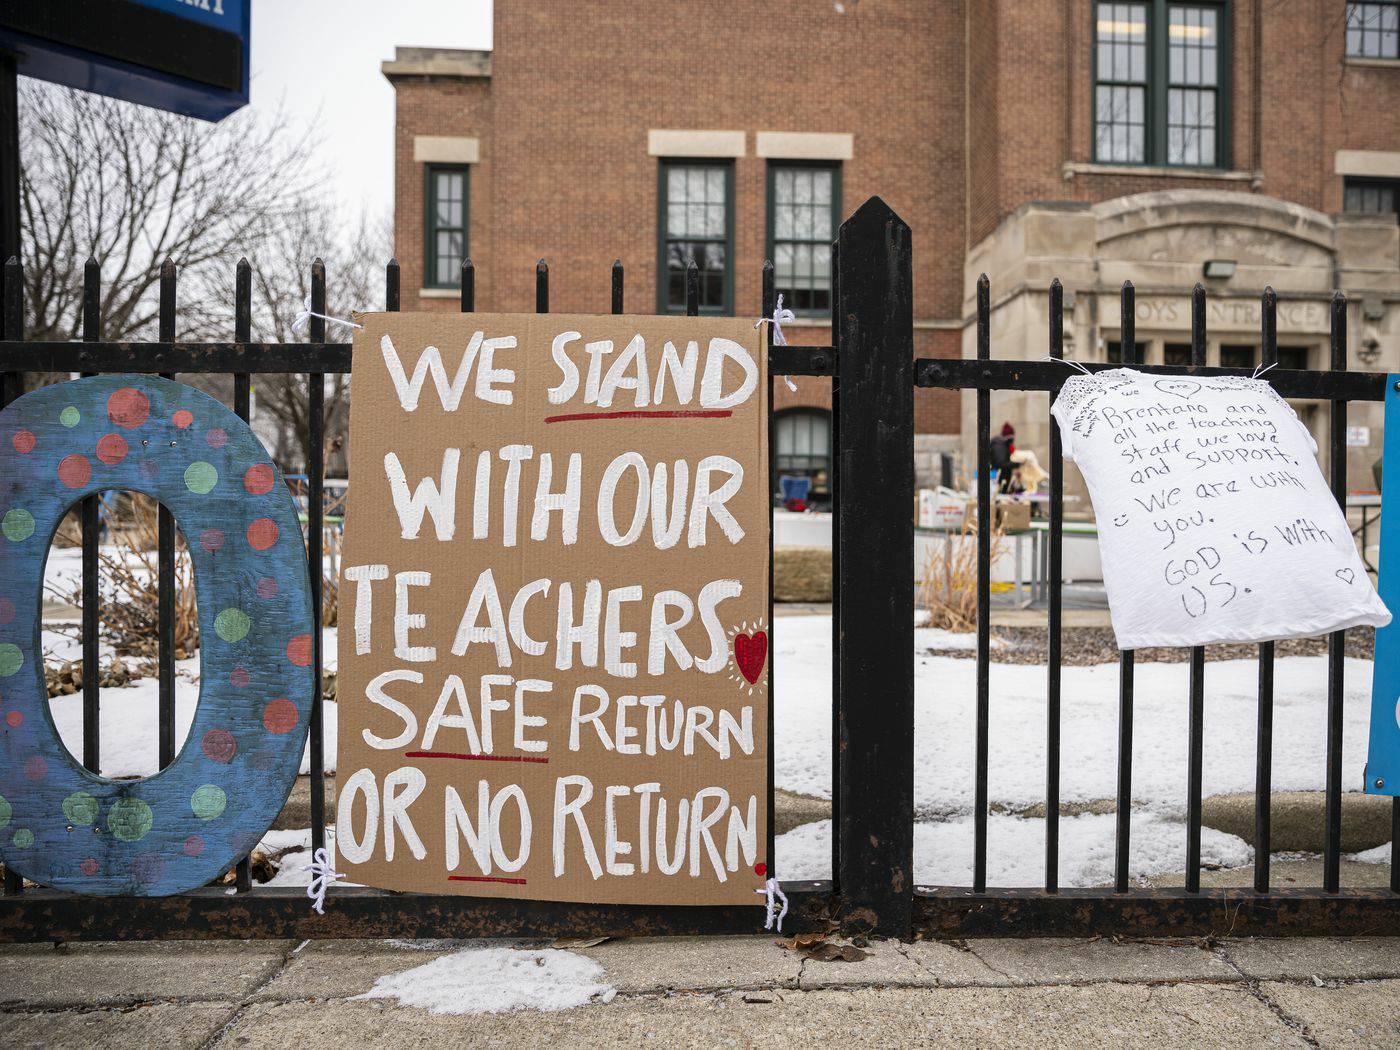 O
WE STAND
WITH OUR
TEACHERS
SAFE RETURN
OR NO RETURN.
BOYS ENTRANCE
we
Brentano and
all the teaching
staff we love
and support.
We are with
you.
GOD is with
US.